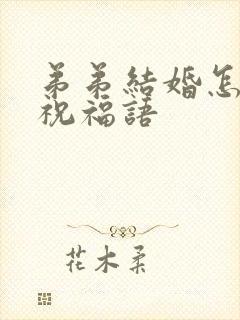 弟弟結婚怎
祝福語
花木柔